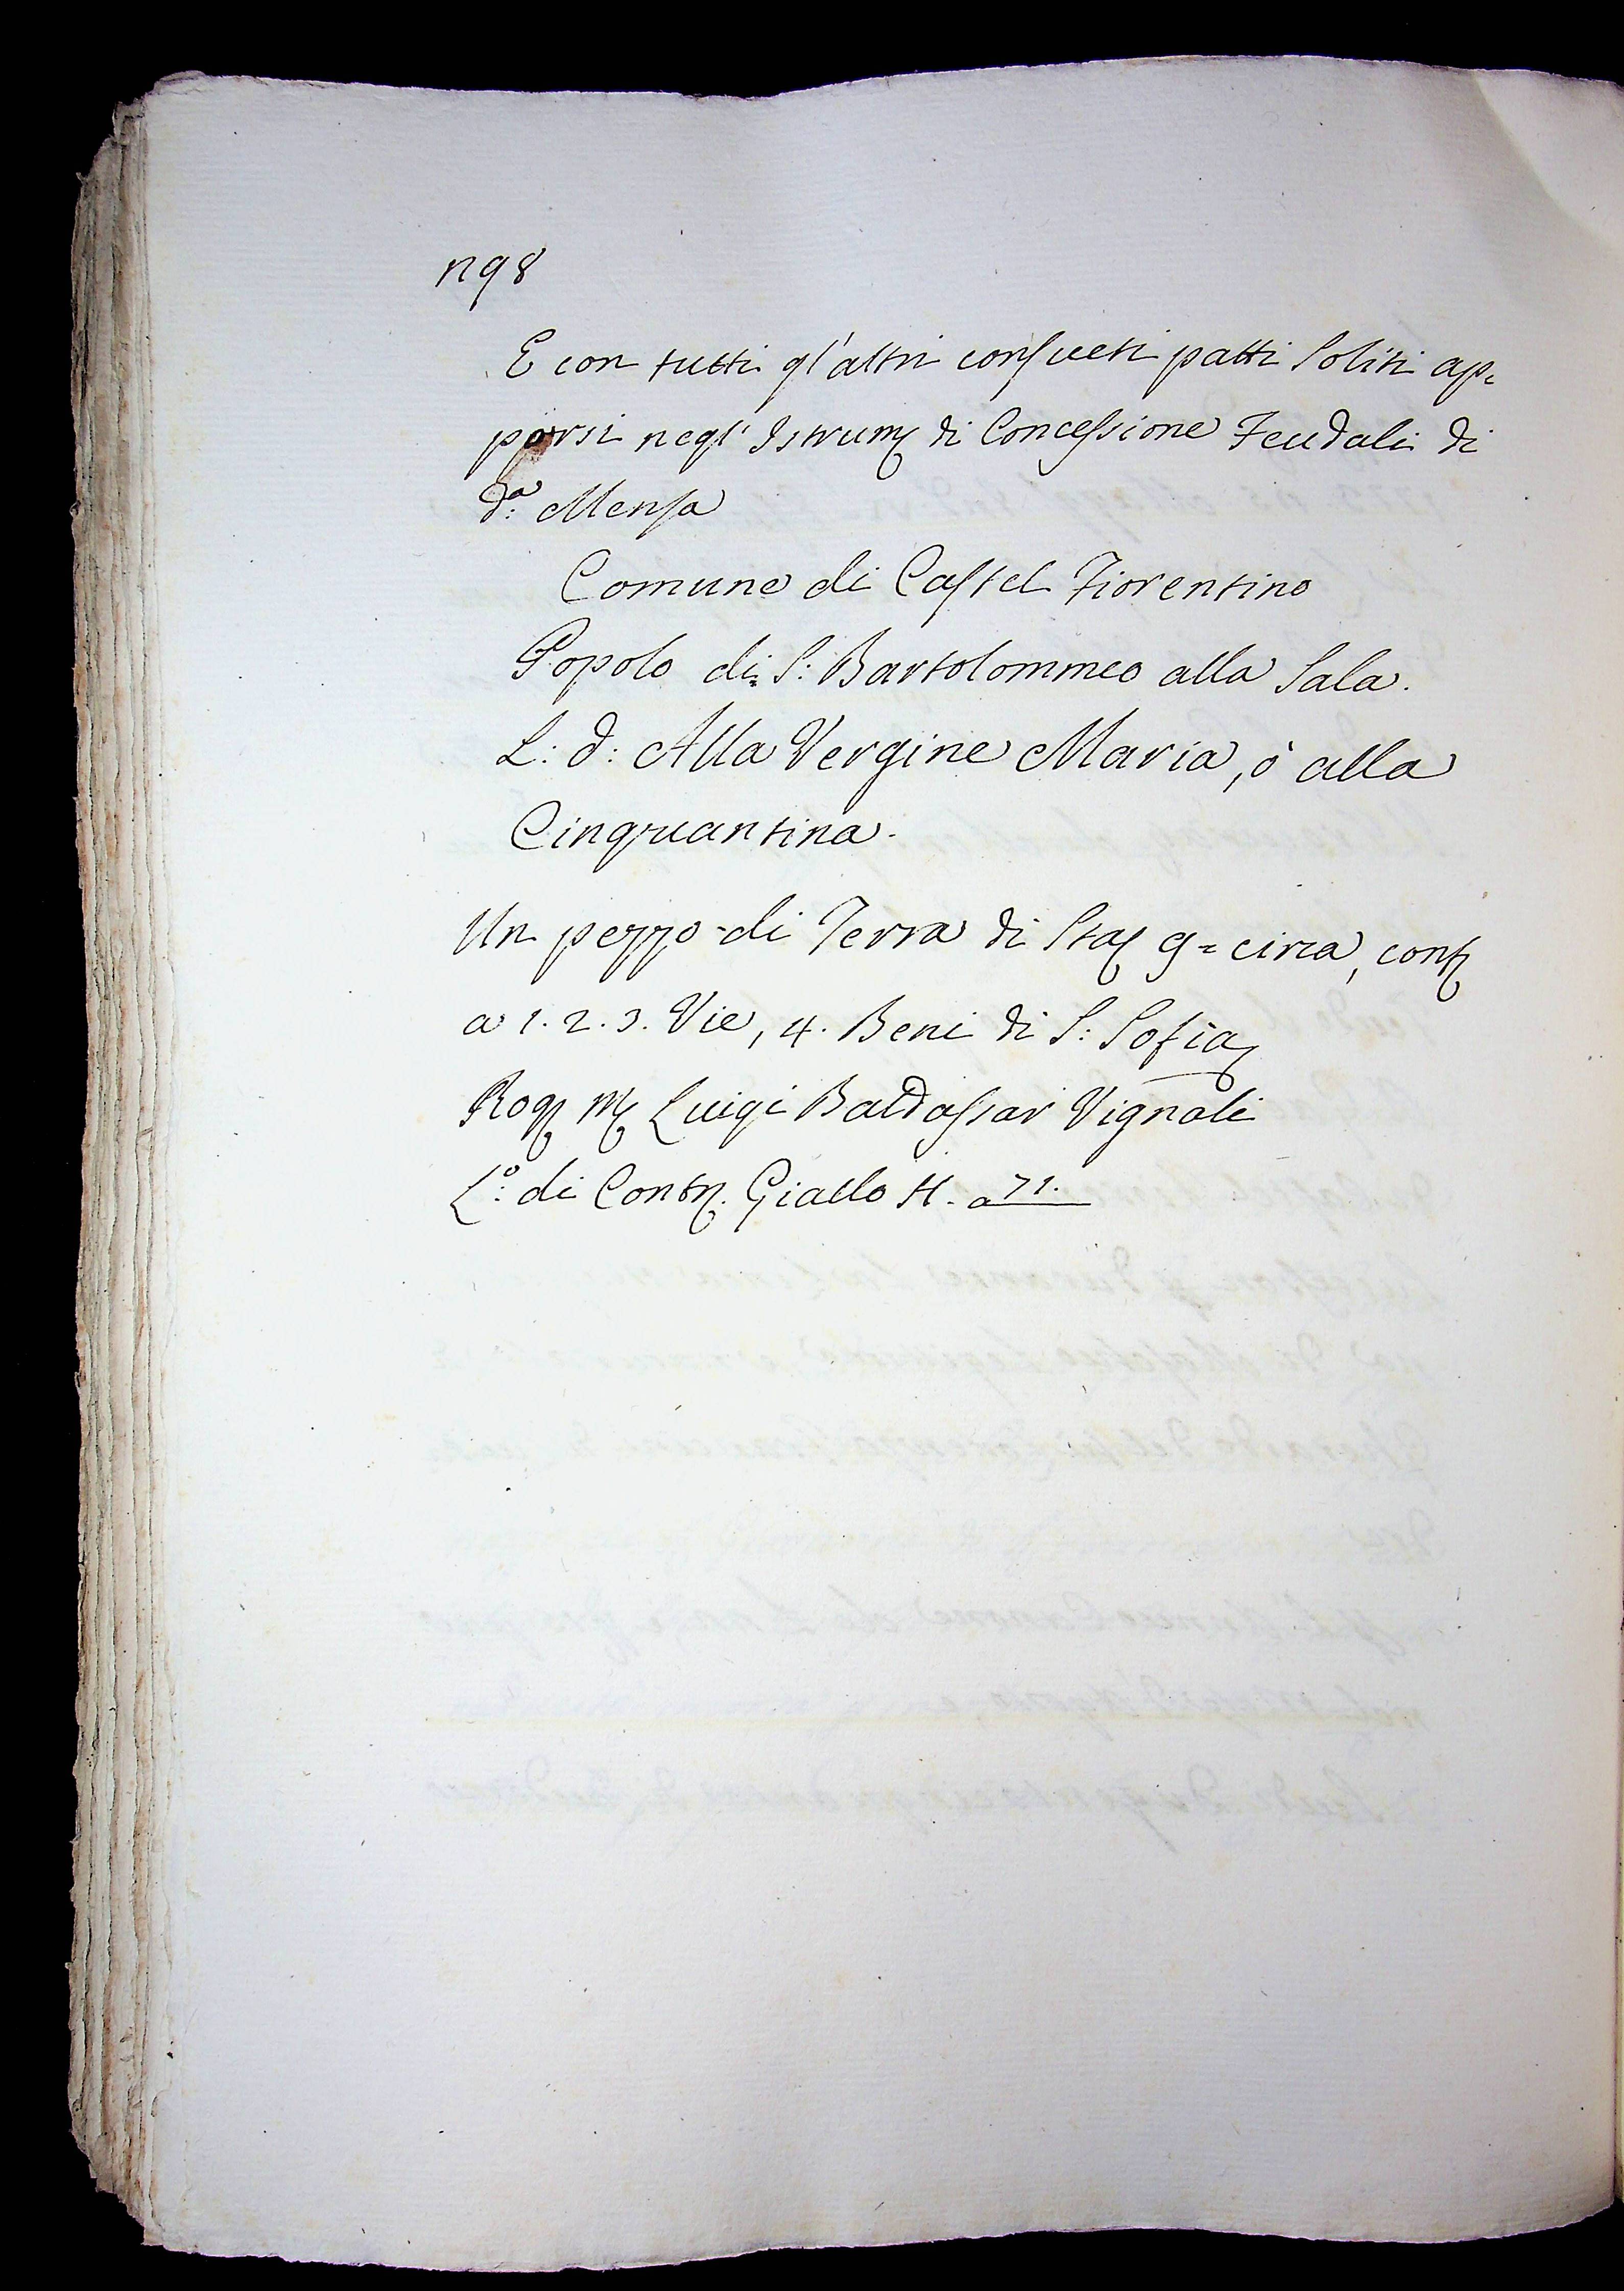 n98
E con tutti gl'altri consueti patti soliti ap=
porsi negl' Istrum di Concessione Feudali di
d.ª Mensa
Comune di Castel Fiorentino
Popolo di S: Bartolommeo alla Sala.
L: d: Alla Vergine Maria, ò alla
Cinquantina.
Un pezzo di Terra di Sta 9= circa, conf
a 1. 2. 3. Vie, 4. Beni di S: Sofia
Rog M Luigi Baldassar Vignali
L.º di Contr. Giallo H. a 71.